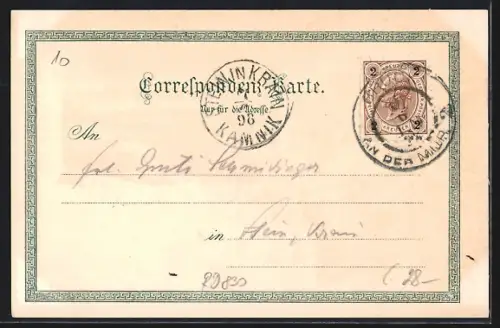 10
Correspondenz-Karte.
Nur für die Adresse
STEIN IN KRAIN
98
KAMNIK
2 2
2 2
AN DER MUR
An
Frl. Gusti Schmidinger
in Stein, Krain
29833
28-